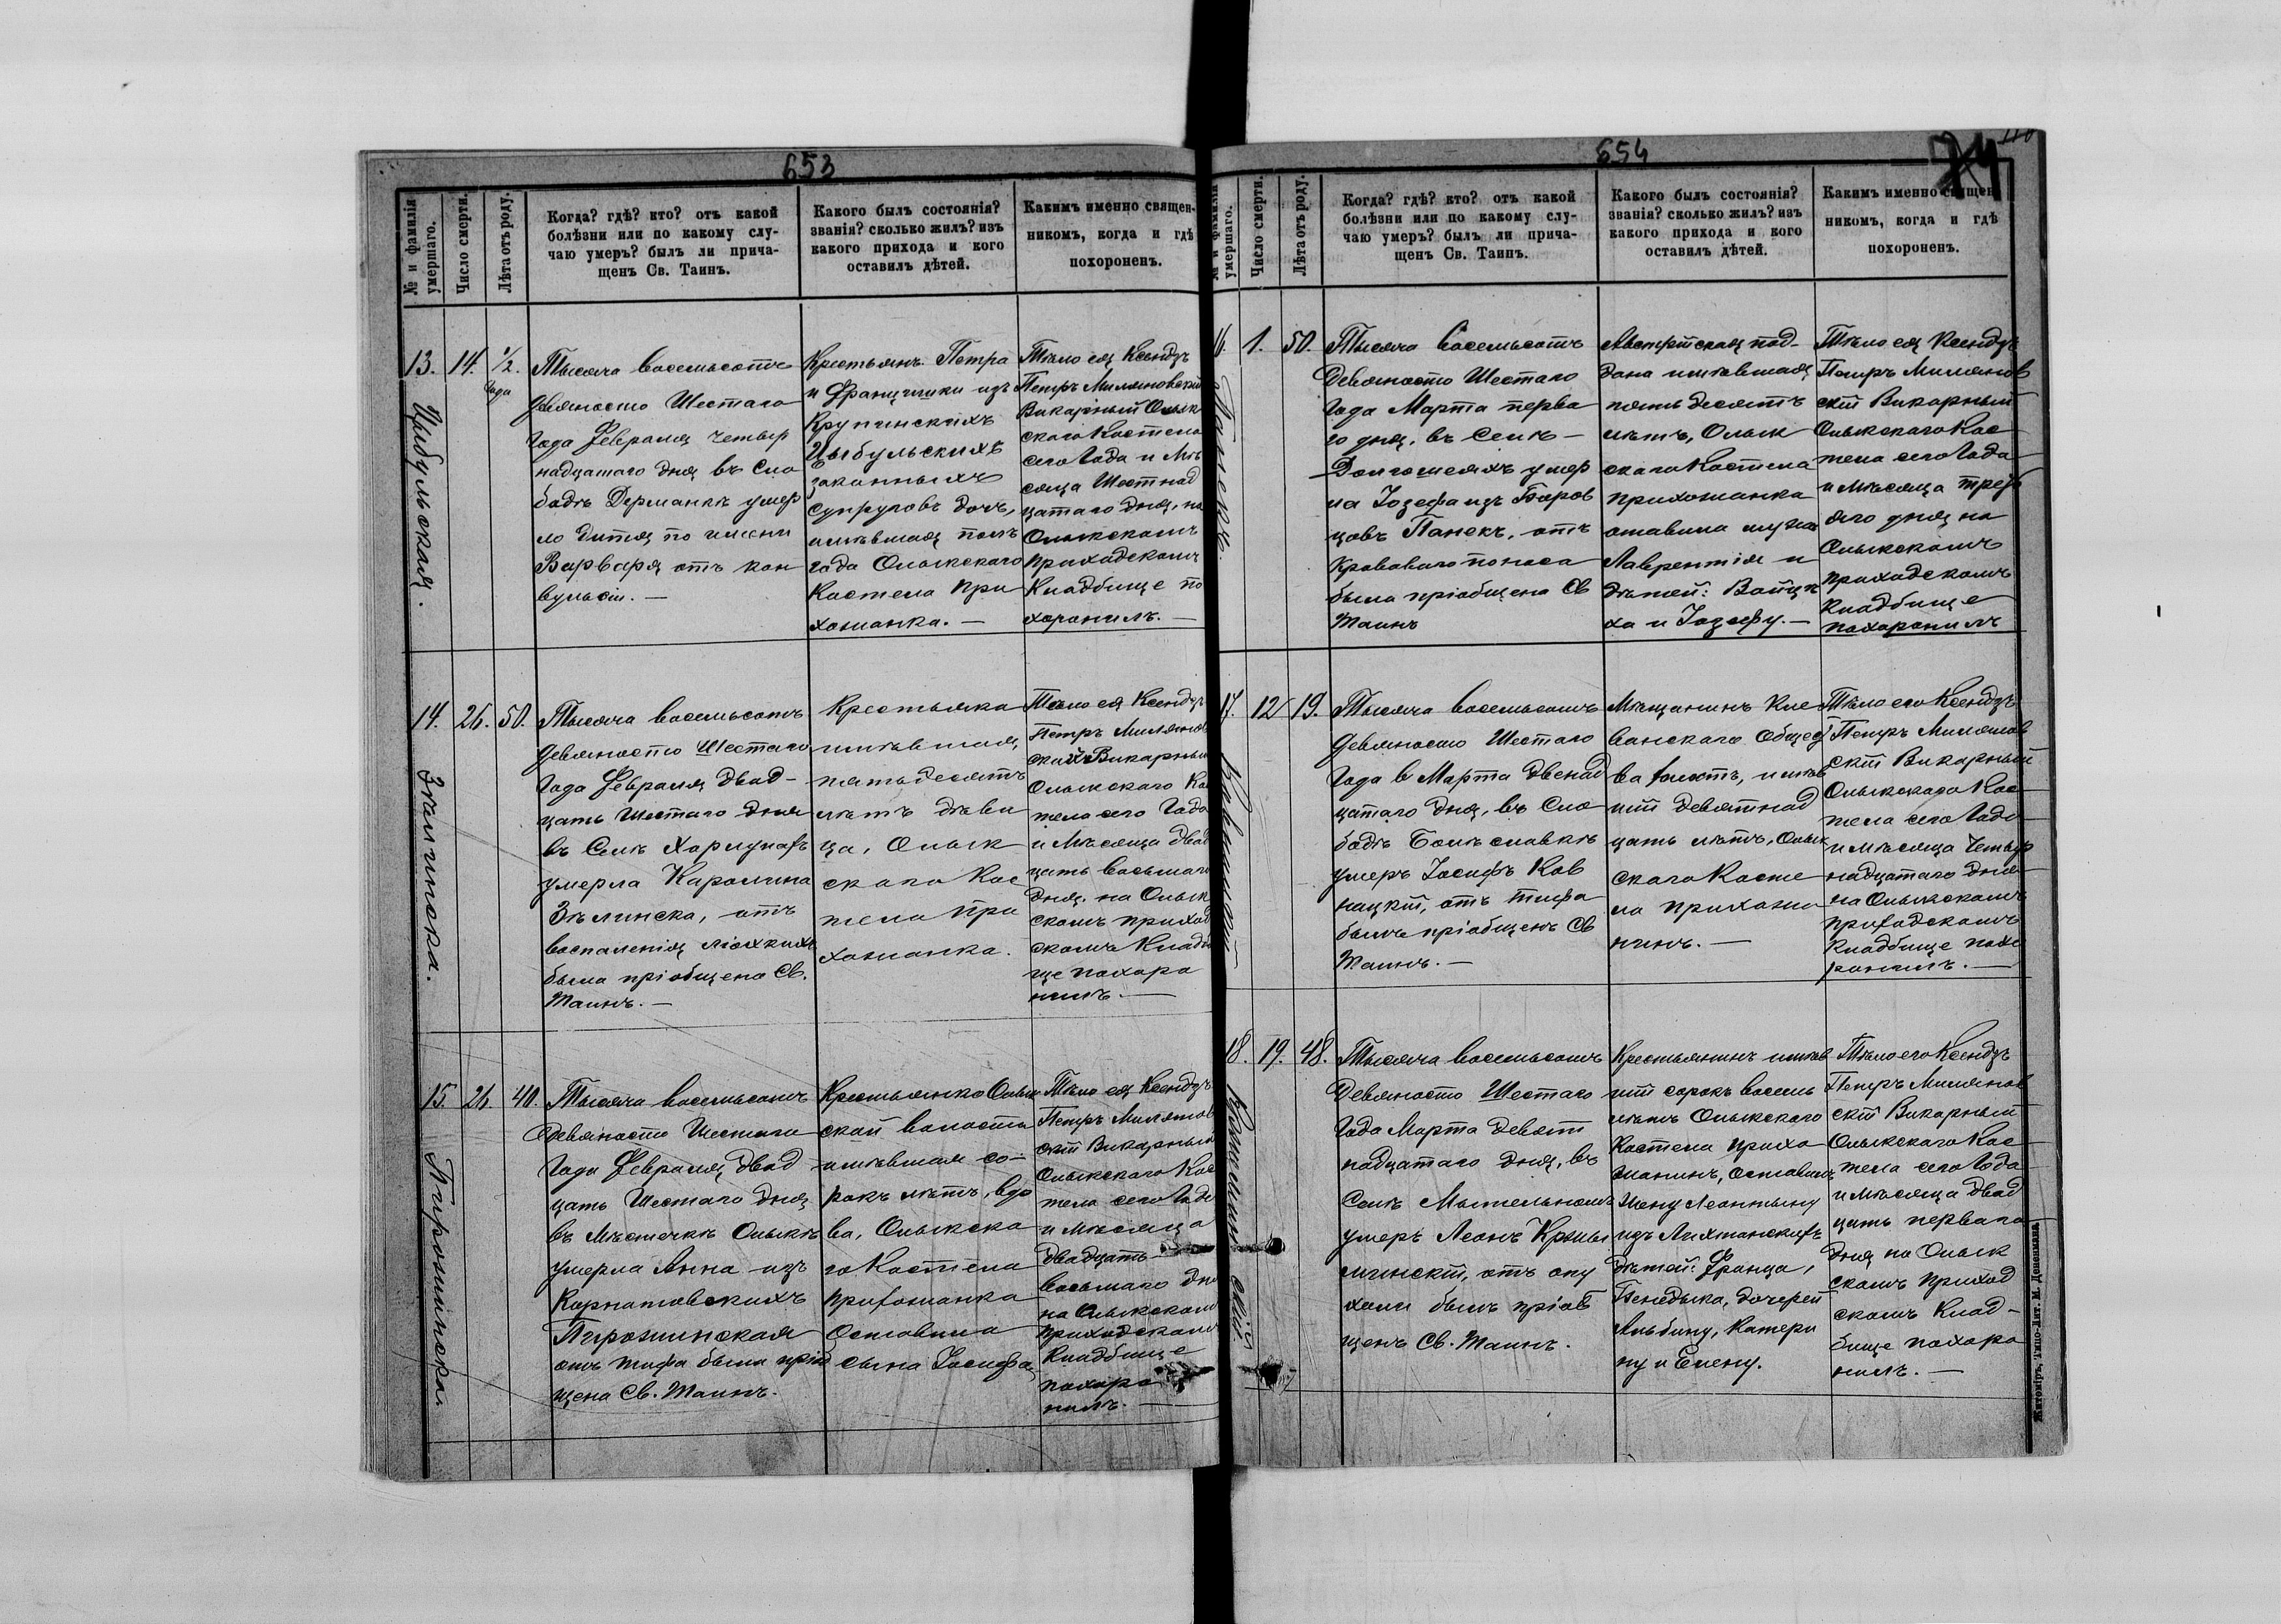 653
№ и фамилія умершаго.
Число смерти.
Лѣта отъ роду.
Когда? гдѣ? кто? отъ какой
болѣзни или по какому слу-
чаю умеръ? былъ ли прича-
щенъ Св. Таинъ.
Какого былъ состоянія?
званія? сколько жилъ? изъ
какого прихода и кого
оставилъ дѣтей.
Какимъ именно священ-
никомъ, когда и гдѣ
похороненъ.
13.
Цыбульская.
14.
1/2.
года
Тысяча восемьсотъ
девяносто Шестаго
Года Февраля четыр
надцатаго дня въ Сло
бодѣ Дерманкѣ умер
ло дитя по имени
Варвара отъ кон
вульсіи. —
Крестьянъ Петра
и Францишки изъ
Крупинскихъ
Цыбульскихъ
законныхъ
супруговъ дочь,
имѣвшая полъ
года Олыкского
Костела При
хожанка. —
Тѣло ея Ксендзъ
Петръ Миляновскій
Викарный Олык
скаго Костела
сего Года и Мѣ
сяца Шестнад
цатаго дня, на
Олыкскомъ
приходскомъ
Кладбище по
хоронилъ. —
14.
Зѣлинска.
26.
50.
Тысяча восемьсотъ
девяносто Шестаго
Года Февраля двад-
цать Шестаго дня
въ Селѣ Хорлупахъ
умерла Каролина
Зѣлинска, отъ
воспаленія лёхкихъ
была пріобщена Св.
Таинъ. —
Крестьянка
имѣвшая,
пятьдесятъ
лѣтъ дѣви
ца, Олык
скаго Кос
тела При
хожанка.
Тѣло ея Ксендзъ
Петръ Милянов
скій Викарный
Олыкскаго Ко
тела сего Года
и Мѣсяца двад
цать восьмаго
дня. на Олык
скомъ приход
скомъ Кладби
ще похоро
нилъ. —
15.
Пирожинская
26.
40.
Тысяча восемьсотъ
Девяносто Шестаго
Года Февраля двад
цать Шестаго дня
въ Мѣстечкѣ Олыкѣ
умерла Анна изъ
Корнатовскихъ
Пирожинская
отъ тифа была пріоб
щена Св. Таинъ.
Крестьянка Олык
ской волости
имѣвшая со-
рокъ лѣтъ, вдо
ва, Олыкска
го Костела
прихожанка
Оставила
сына Іосифа
Тѣло ея Ксендзъ
Петръ Милянов
скій Викарный
Олыкскаго Кос
тела сего Года
и Мѣсяца
двадцать
восьмаго дня
на Олыкскомъ
приходскомъ
Кладбище
похоро
нилъ. —
654
74
№ и фамилія умершаго.
Число смерти.
Лѣта отъ роду.
Когда? гдѣ? кто? отъ какой
болѣзни или по какому слу-
чаю умеръ? былъ ли прича-
щенъ Св. Таинъ.
Какого былъ состоянія?
званія? сколько жилъ? изъ
какого прихода и кого
оставилъ дѣтей.
Какимъ именно священ
никомъ, когда и гдѣ
похороненъ.
16.
Панекъ.
1.
50.
Тысяча восемьсотъ
Девяносто Шестаго
Года Марта перва
го дня, въ Селѣ —
Долгошеяхъ умер
ла Іозефа изъ Боров
цовъ Панекъ, отъ
Кроваваго поноса
была пріобщена Св
Таинъ
Австрійская под-
дана имѣвшая
пятьдесятъ
лѣтъ, Олык
скаго Костела
прихожанка
оставила мужа
Лаврентія и
дѣтей: Войцѣ
ха и Іозефу. —
Тѣло ея Ксендзъ
Петръ Милянов
скій Викарный
Олыкскаго Кос
тела сего Года
и Мѣсяца треть
яго дня на
Олыкскомъ
приходскомъ
Кладбище
похоронилъ
17.
12
19.
Тысяча восемьсотъ
девяносто Шестаго
Года в Марта двенад
цатаго дня, въ Сло
бодѣ Болѣславкѣ
умеръ Іосифъ Ков
нацкій, отъ тифа
былъ пріобщенъ Св
Таинъ. —
Мѣщанинъ Кле
ванскаго Общес
ва холостъ, имѣв
шій девятнад
цать лѣтъ, Олык
скаго Косте
ла прихожа
нинъ. —
Тѣло его Ксендзъ
Петръ Милянов
скій Викарный
Олыкскаго Кос
тела сего Года
и Мѣсяца Четыр
надцатаго дня
на Олыкскомъ
приходскомъ
Кладбище похо
ронилъ. —
18.
19.
48.
Тысяча восемьсотъ
Девяносто Шестаго
Года Марта Девят
надцатаго дня, въ
Селѣ Мытельномъ
умеръ Леонъ Кржы
линскій, отъ опу
холи былъ пріоб
щенъ Св. Таинъ.
Крестьянинъ имѣв
шій сорокъ восемь
лѣтъ Олыкского
Костела прихо
жанинъ, Оставилъ
Жену Леонтыну
изъ Лихтанскихъ
Дѣтей: Франца,
Бенедыка, дочерей
Альбину, Катери
ну и Елену.
Тѣло его Ксендзъ
Петръ Милянов
скій Викарный
Олыкскаго Кос
тела сего Года
и Мѣсяца двад
цать перваго
дня на Олык
скомъ приход
скомъ Клад-
бище похоро
нилъ. —
Житомiръ, Типо-Лит. М. Дененмана